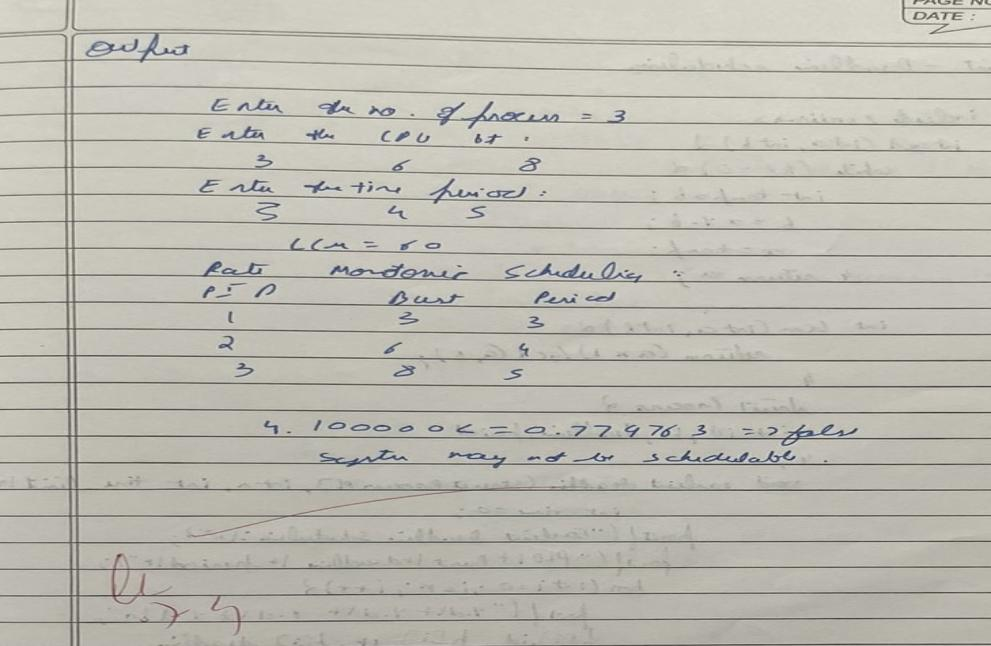 PAGE NO
DATE :
Output
Enter the no. of process = 3
Enter the CPU bt :
3 6 8
Enter the time period :
3 4 5
LCM = 60
Rate Monotonic Scheduling :
PID Burst Period
1 3 3
2 6 4
3 8 5
4. 100000 <= 0.779763 => false
System may not be schedulable.